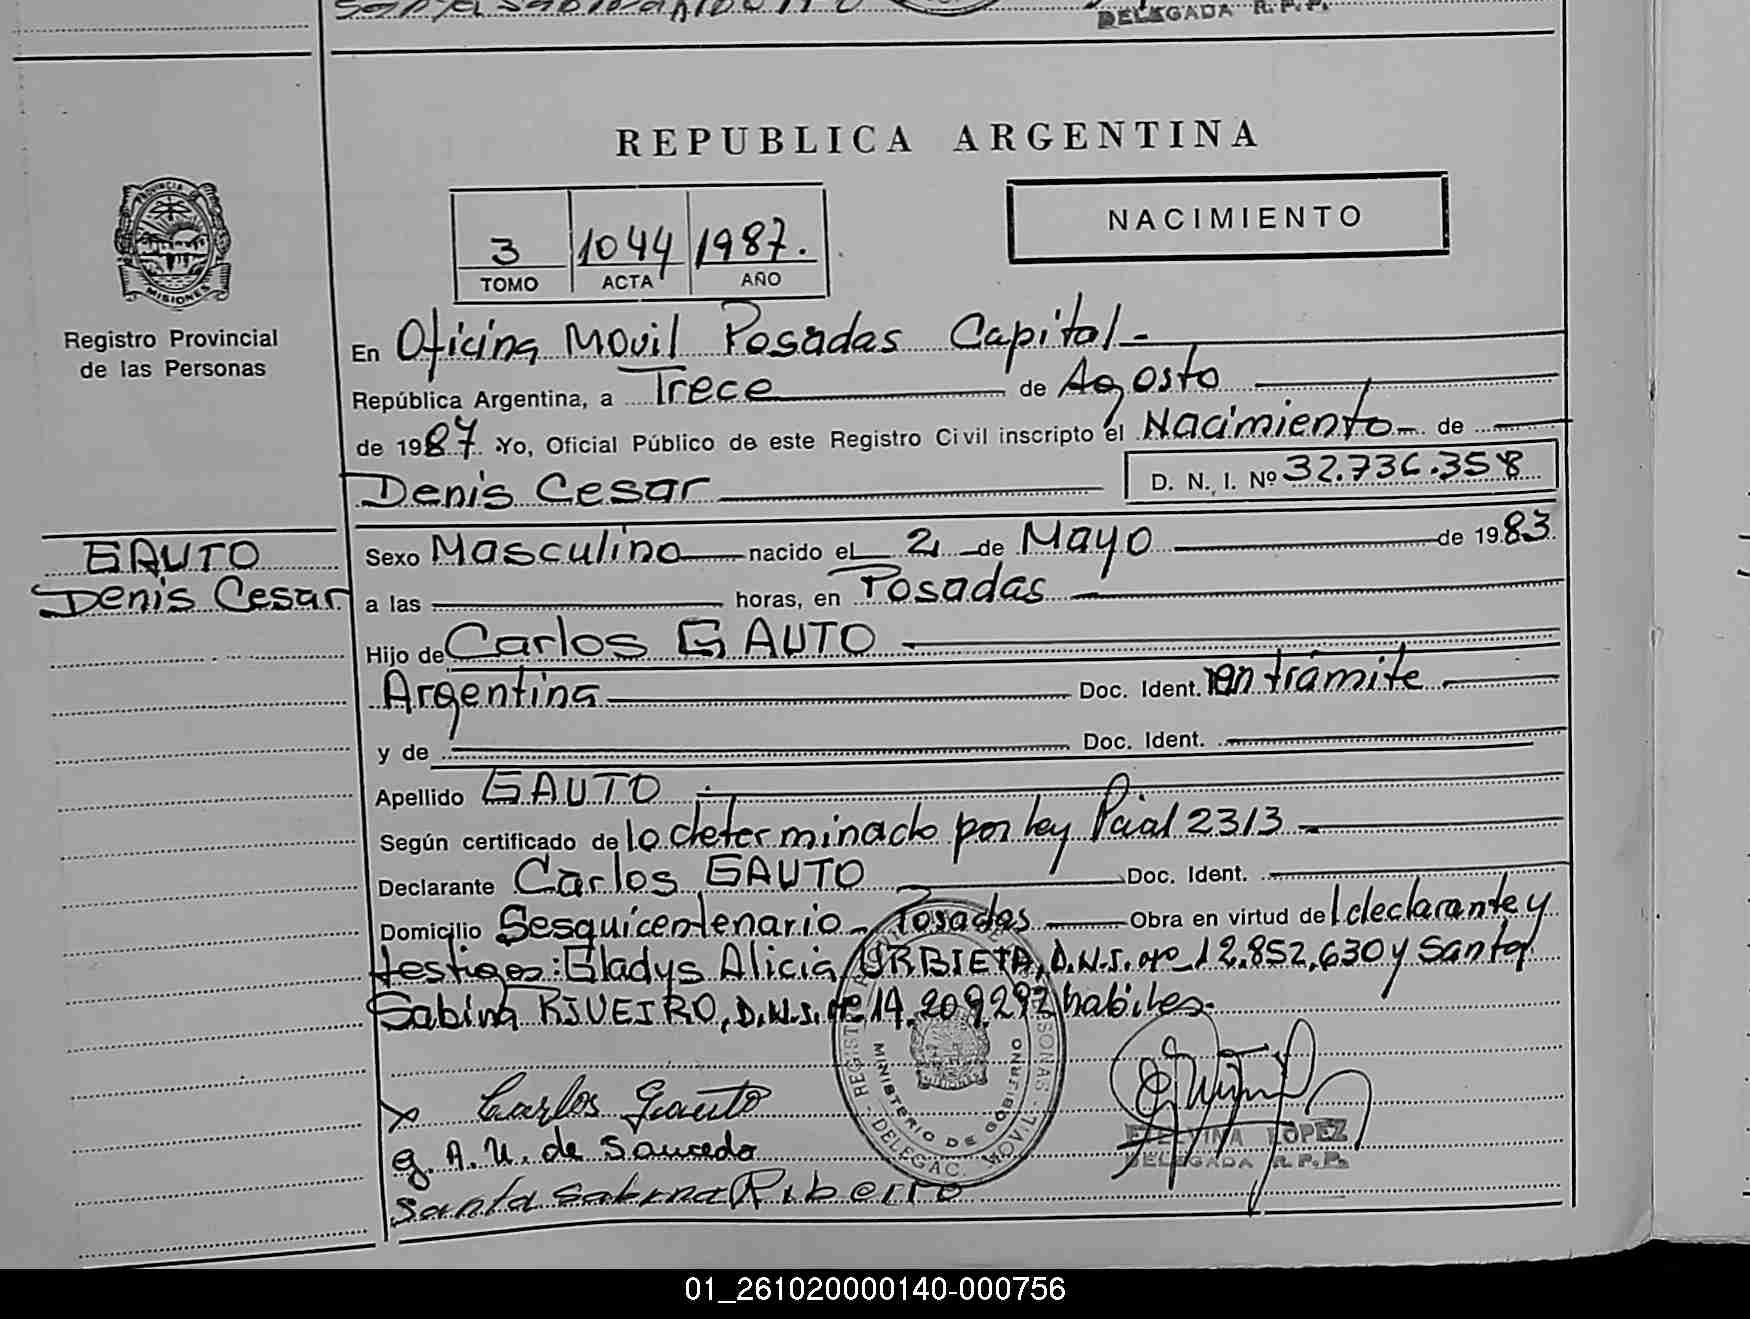 DELEGADA R.P.P.
REPUBLICA ARGENTINA
NACIMIENTO
3 1044 1987.
TOMO ACTA AÑO
PROVINCIA DE
MISIONES
Registro Provincial
de las Personas
En Oficina Movil Posadas Capital-
República Argentina, a Trece de Agosto
de 1987. Yo, Oficial Público de este Registro Civil inscripto el Nacimiento de
Denis Cesar D. N. I. Nº 32.736.358
GAUTO
Denis Cesar
Sexo Masculino nacido el 2 de Mayo de 1983
a las horas, en Posadas
Hijo de Carlos GAUTO
Argentina Doc. Ident. en trámite
y de Doc. Ident.
Apellido GAUTO
Según certificado de lo determinado por ley Pcial 2313
Declarante Carlos GAUTO Doc. Ident.
Domicilio Sesquicentenario - Posadas Obra en virtud del declarante y
testigos: Gladys Alicia URBIETA, D.N.I. nº 12.852.630 y Santa
Sabina RIVEIRO, D.N.I. nº 14.209.292 habiles.
MINISTERIO DE GOBIERNO
DELEGAC. MOVIL
x Carlos Gauto
g. A. U. de Saucedo
Santa Sabina Riberro
ETELVINA LOPEZ
DELEGADA R.P.P.
01_261020000140-000756